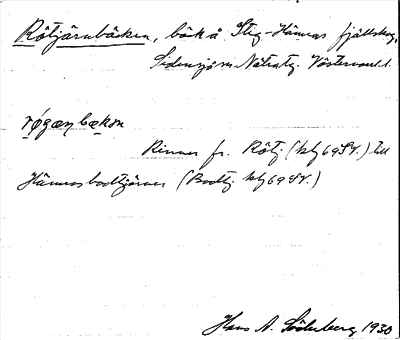 Rötjärnbäcken, bäck å Stig-Hämras fjällskog,
Sidensjö sn Nätra tg. Västernorrl.
røgæn bækɷn
Rinner fr. Rötj. (kbl 69SV.) till
Hämrasbodtjärnen (Bodtj. kbl 69SV.)
Hans A. Söderberg 1930